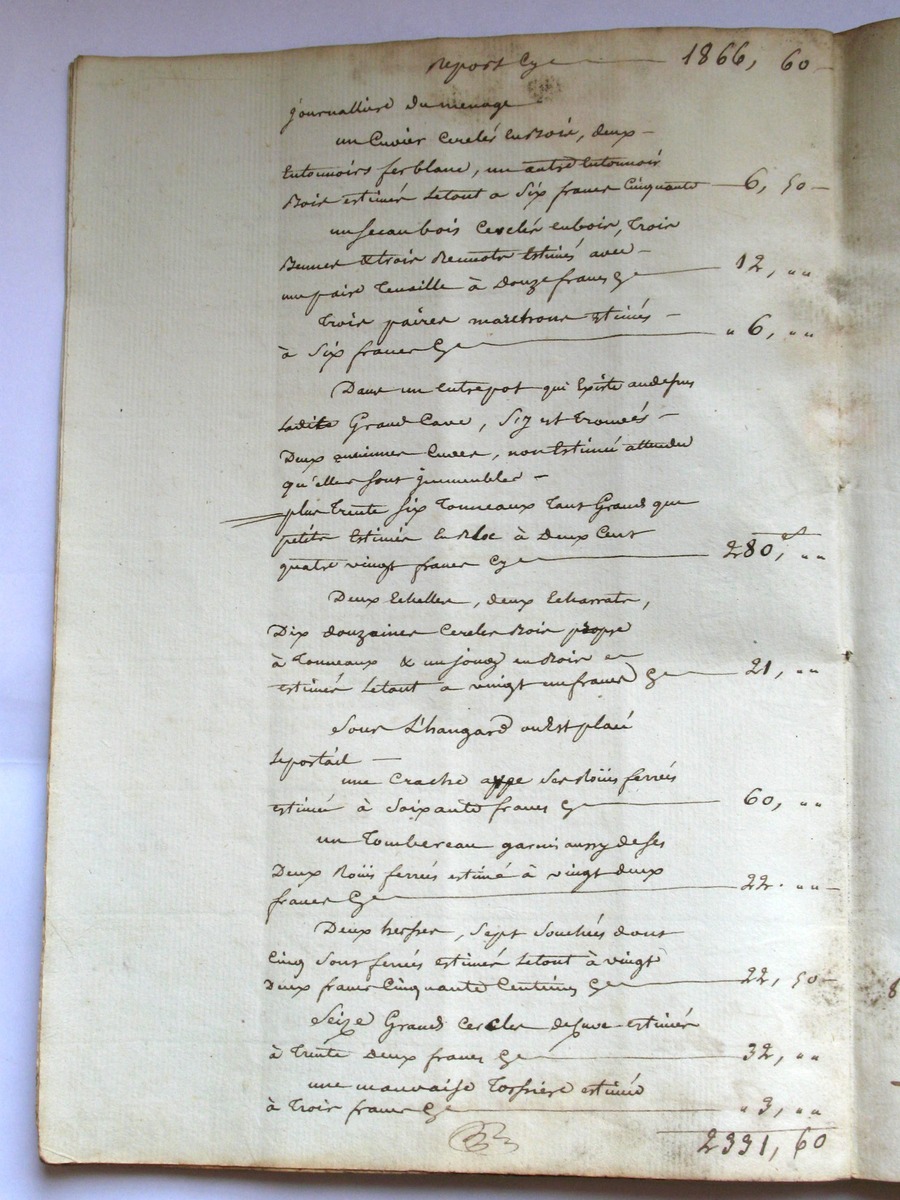 Report Cy 1866, 60
journalliere du menage
un Cuvier Cerclé en Bois, deux
Entonnoirs fer blanc, un autre Entonnoir
Bois estimés le tout a Six francs Cinquante 6, 50
un Seau bois Cerclé en bois, Trois
Bennes & trois Estimés avec
une paire Tenaille à Douze francs Cy 12, ""
Trois paires estimés
à Six francs Cy " 6, ""
Dans un Entrepot qui Existe au desus
Ladite Grand Cave, Siy est Trouvés
Deux anciennes Cuves, non Estimé attendu
qu'elles sont immeubles
plus Trente Six Tonneaux Tant Grands que
petits Estimés En Bloc à Deux Cent
quatre vingt francs Cy 280, ""
Deux Echelles, deux
Dix douzaines Cercles Bois propre
à Tonneaux & un en Bois
estimés le tout a vingt un francs Cy 21, ""
Sous L'hangard ou Est placé
Le portail
une Ses Roües ferrées
estimée à Soixante francs Cy 60, ""
un Tombereau garni aussy de ses
Deux Roües ferrées estimé à vingt deux
francs Cy 22. ""
Deux herses, Sept dont
Cinq Sont ferrées estimés le tout à vingt
Deux francs Cinquante Centimes Cy 22, 50
Seize Grands Cercles de Cuve estimés
à Trente Deux francs Cy 32, ""
une mauvaise estimée
à Trois francs Cy " 3, ""
2331, 60